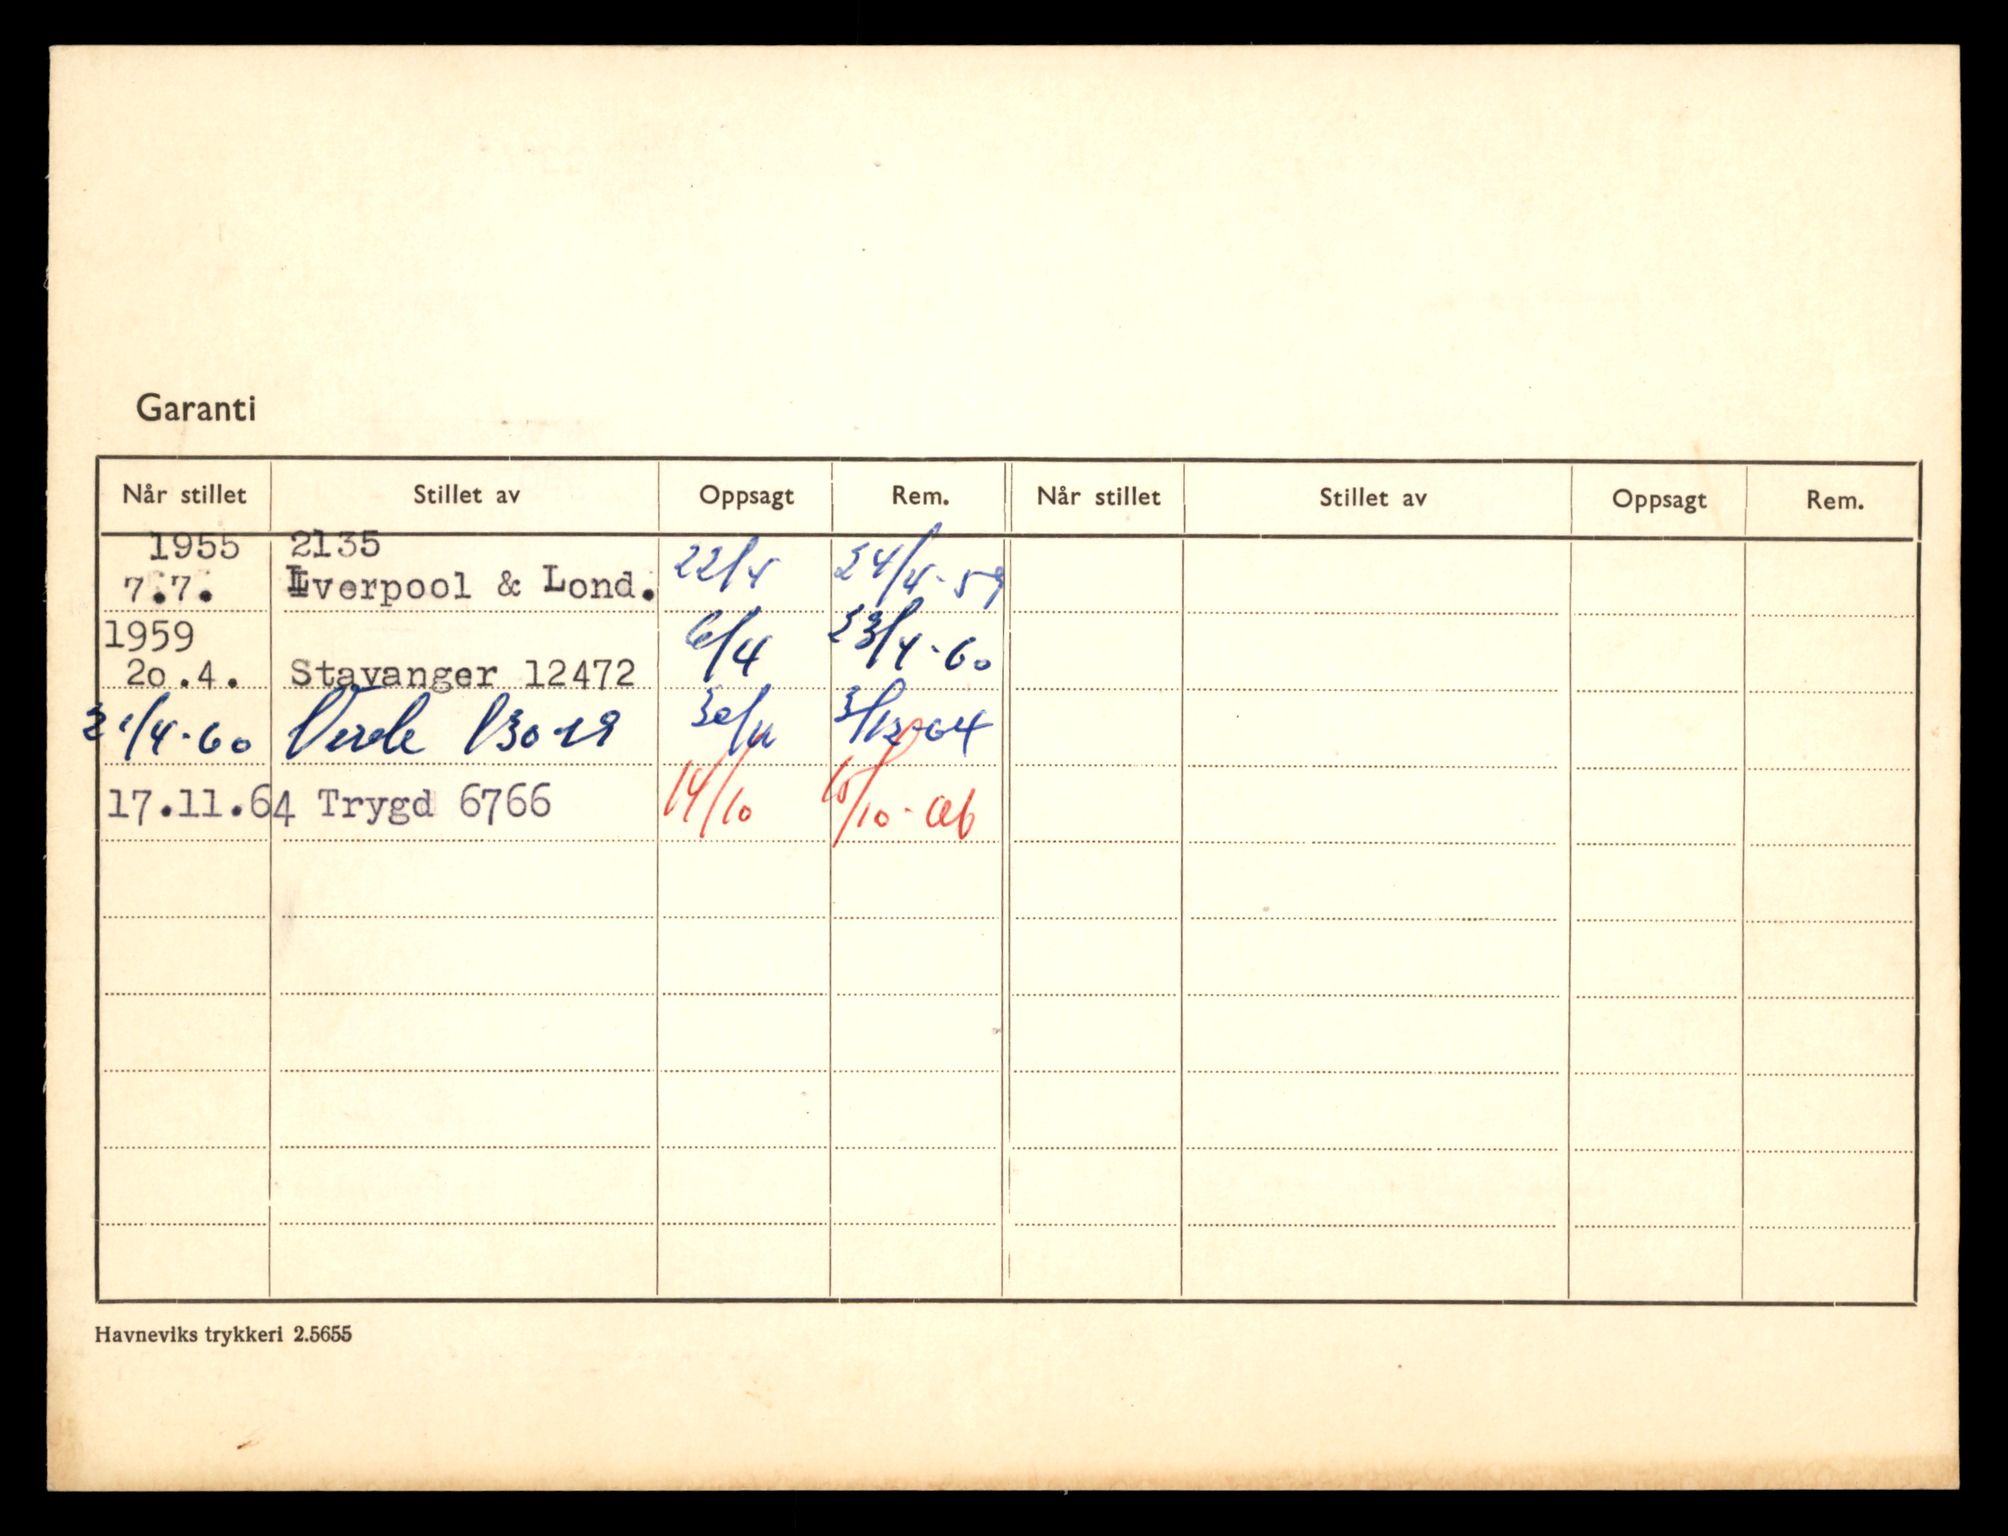 Garanti
Når stillet Stillet av Oppsagt Rem. Når stillet Stillet av Oppsagt Rem.
1955 2135
7.7. Lverpool & Lond. 22/4 24/4-59
1959 6/4 23/4-60
20.4. Stavanger 12472
21/4-60 13019 30/11 3/12-64
17.11.64 Trygd 6766 14/10 15/10-
Havneviks trykkeri 2.5655